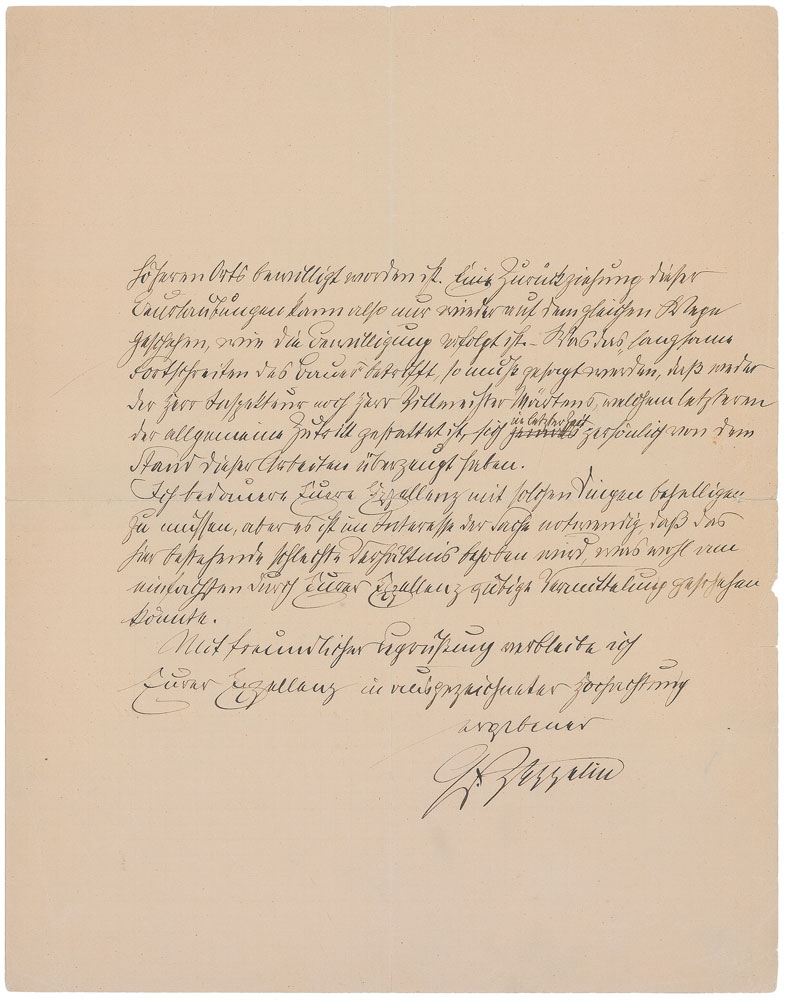 höheren Orts bewilligt worden ist. Eine Zurückziehung dieser
Beurlaubungen kann also nur wieder auf dem gleichen Wege
geschehen, wie die Bewilligung erfolgt ist. – Was das „langsame
Fortschreiten des Baues" betrifft, so muss gesagt werden, daß weder
der Herr Inspekteur noch Herr Rittmeister Märtens, welchem letzteren
der allgemeine Zutritt gestattet ist, sich in letzter Zeit persönlich von dem
Stand dieser Arbeiten überzeugt haben.
Ich bedauere Euere Exzellenz mit solchen Dingen behelligen
zu müssen, aber es ist im Interesse der Sache notwendig, daß das
hier bestehende schlechte Verhältnis behoben wird, was wohl am
einfachsten durch Eurer Exzellenz gütige Vermittelung geschehen
könnte.
Mit freundlicher Begrüßung verbleibe ich
Eurer Exzellenz in ausgezeichneter Hochachtung
ergebener
Gf. Zeppelin